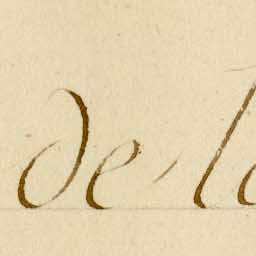 de l